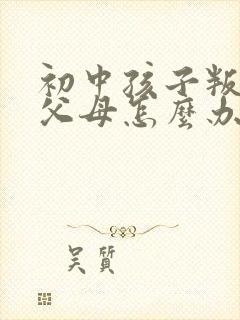 初中孩子叛
父母怎麼办
吴質